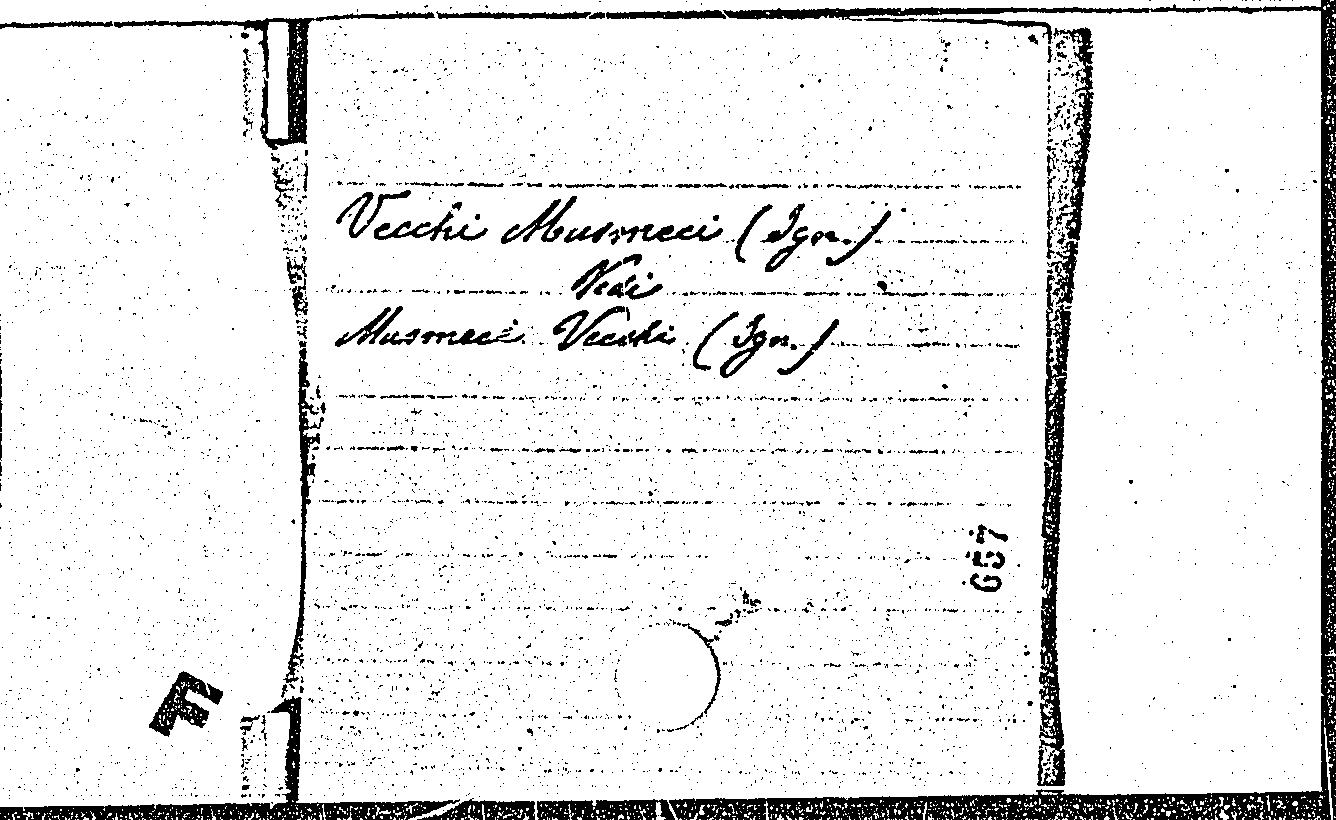 Vecchi Musmeci (Ign.)
Vedi
Musmeci Vecchi (Ign.)
657
F